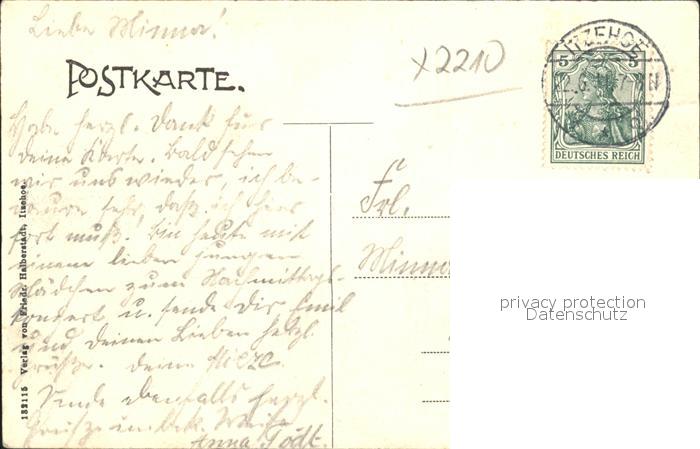 Liebe Minna!
POSTKARTE.
x2210
ITZEHOE
5 5
DEUTSCHES REICH
Habe herzl. Dank für
deine Karte. Bald sehen
wir uns wieder, ich be-
daure sehr, daß ich hier
fort muß. Bin heute mit
einem lieben jungen
Mädchen zum Nachmittags-
konzert u. sende Dir, Emil
und deinen Lieben herzl.
Grüße. deine
Sende ebenfalls herzl.
Grüße unbek. Weise
Anna Tödt.
Frl.
Minna
132115 Verlag von Friedr. Halberstadt, Itzehoe.
privacy protection
Datenschutz